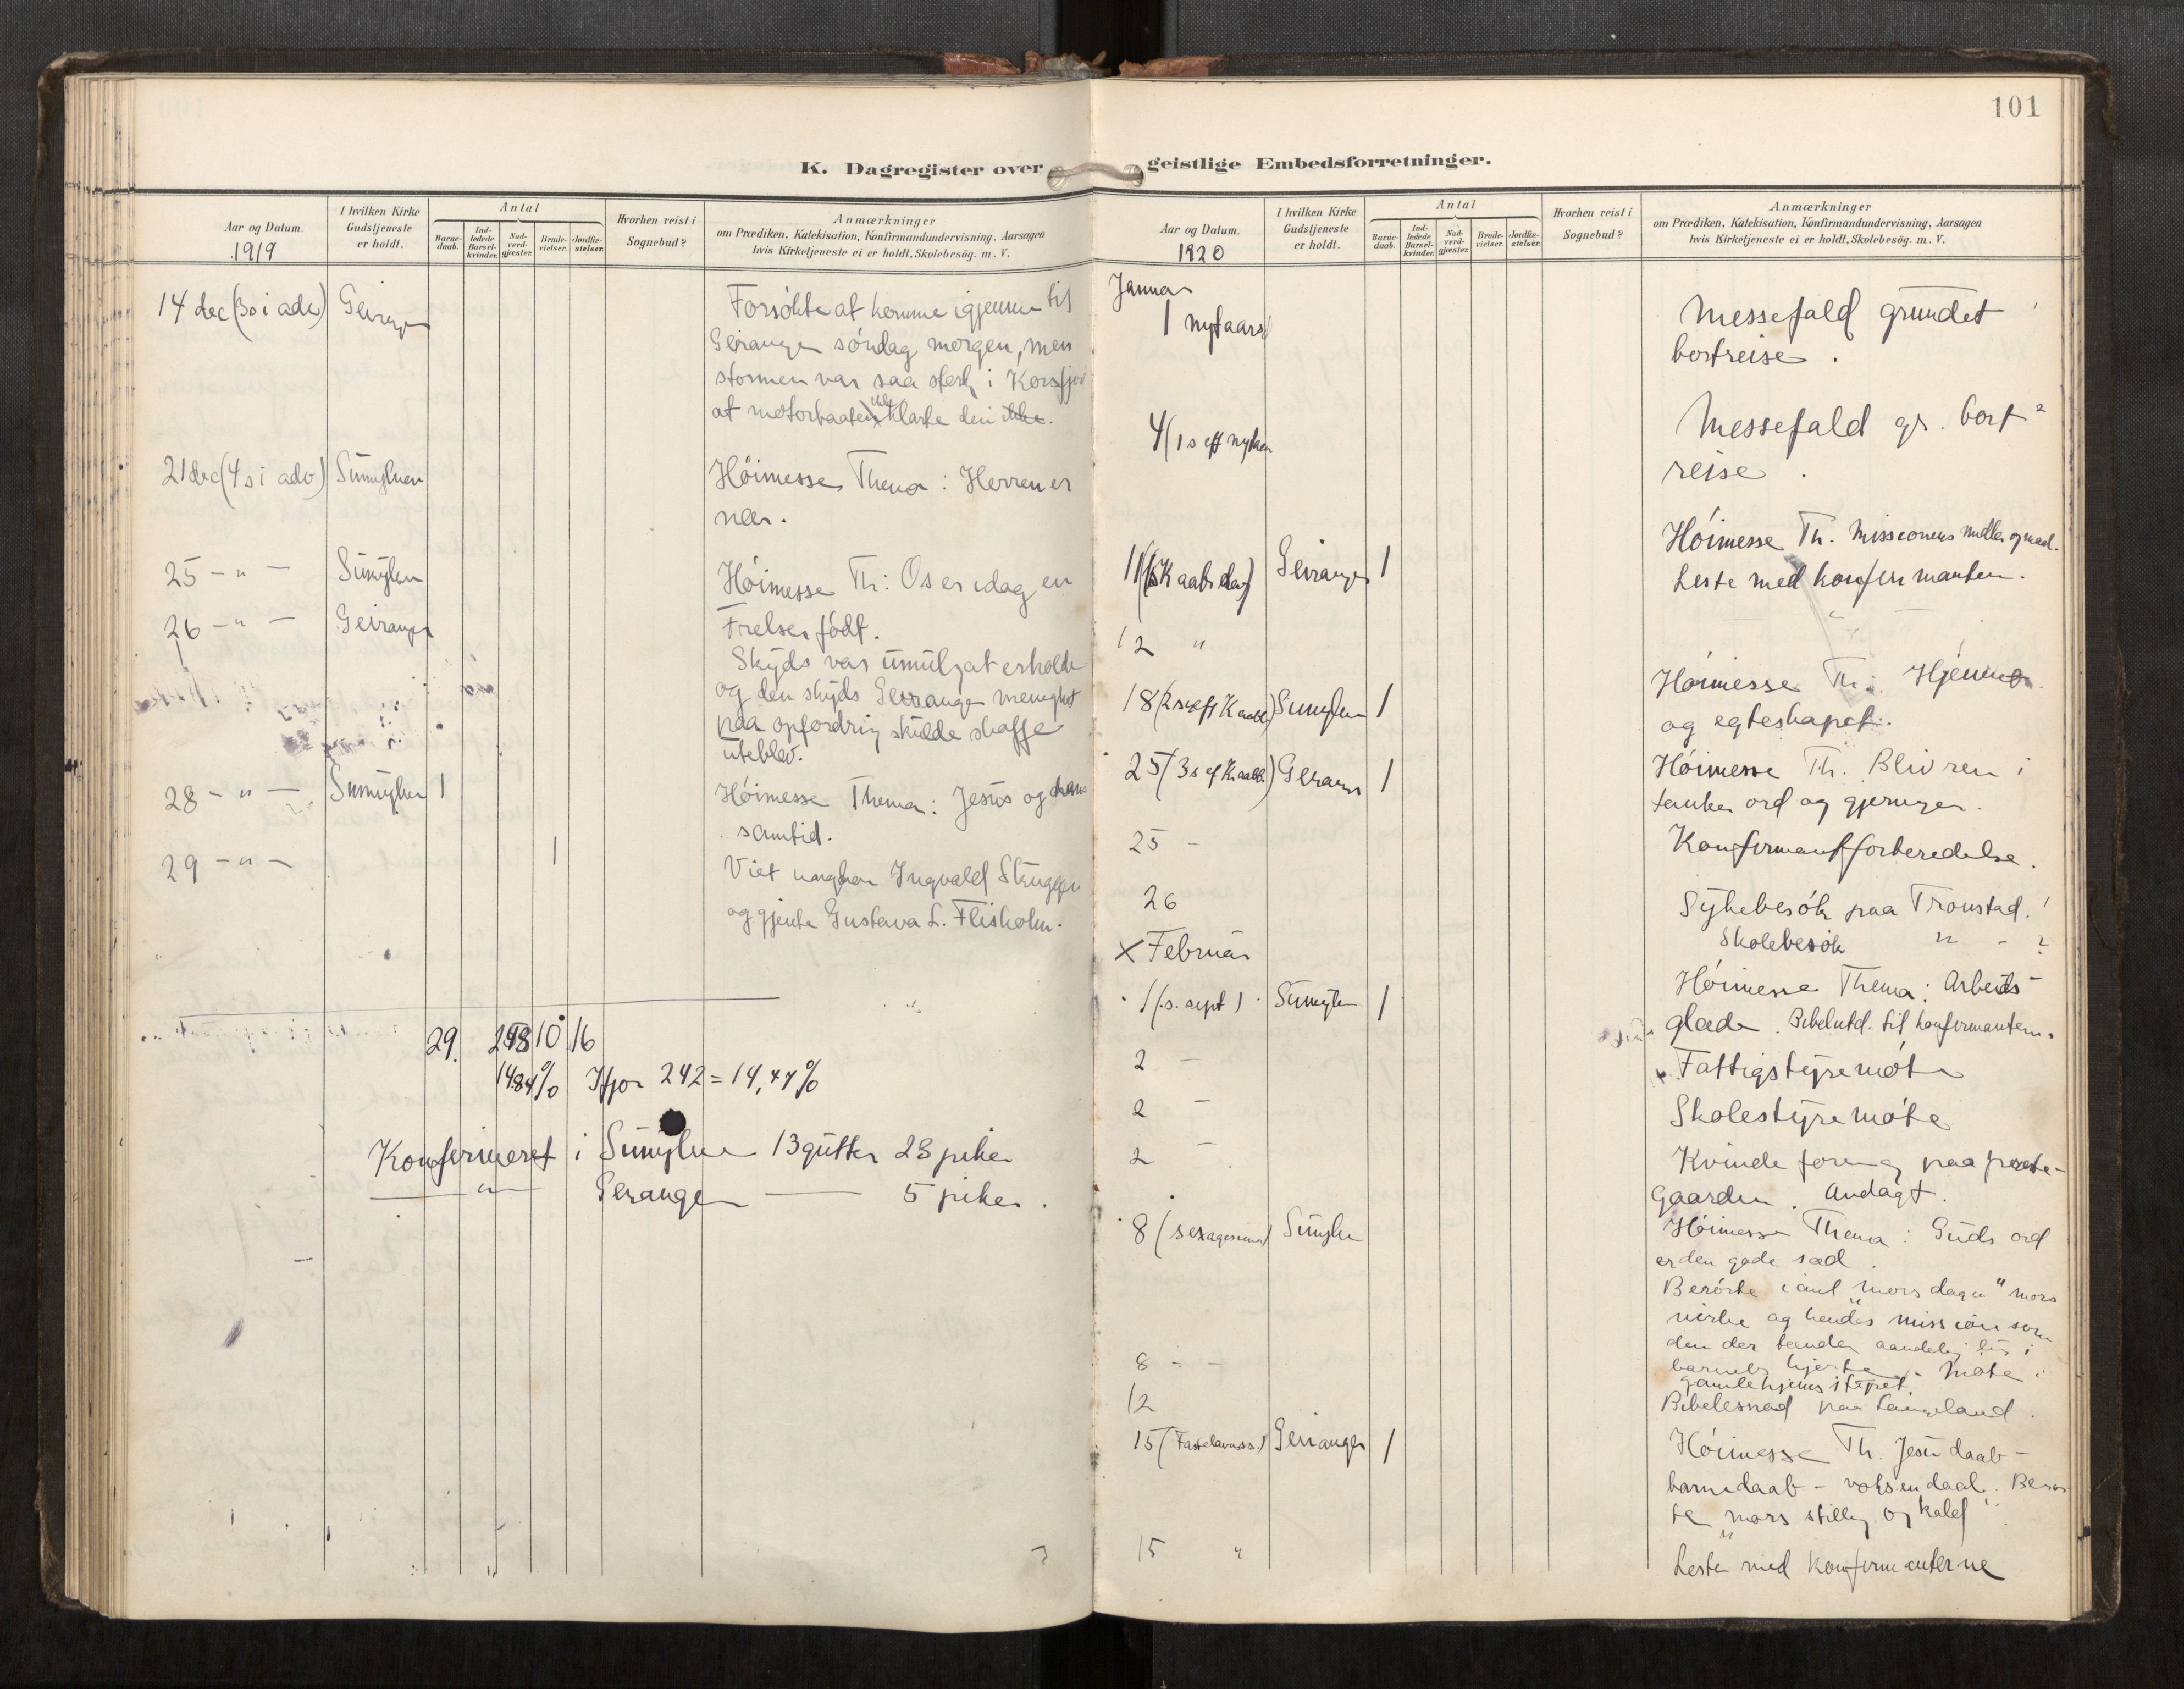 101
K. Dagregister over geistlige Embedsforretninger.
Aar og Datum.
1919
I hvilken Kirke Gudstjeneste er holdt.
Antal
Barne-daab.
Ind-ledede Barsel-kvinder.
Nad-verd-gjester.
Brude-vielser.
Jordfæ-stelser.
Hvorhen reist i Sognebud?
Anmærkninger
om Prædiken, Katekisation, Konfirmandundervisning, Aarsagen
hvis Kirketjeneste ei er holdt, Skolebesøg. m. V.
14 dec (3 s i adv) Geiranger Forsökte at komme igjennem til
Geiranger söndag morgen, men
stormen var saa sterk i Korsfjor
at motorbaaten ikke klarte den ikke.
21 dec (4 s i adv) Sunnylven Höimesse Thema: Herren er
nær.
25 - " - Sunnylven Höimesse Th: Os er idag en
Frelser födt.
26 - " - Geiranger Skyds var umulig at erholde
og den skyds Geiranger menighet
paa opfordring skulde skaffe
uteblev.
28 - " - Sunnylven 1 Höimesse Thema: Jesus og hans
samtid.
29 - " - 1 Viet ungkar Ingvald
og gjente Gustava L. Flisholm.
29. 248 10 16
14,84% Ifjor 242 = 14,47%
Konfirmeret i Sunnylven 13 gutter 23 piker
— " — Geiranger — 5 piker.
Aar og Datum.
1920
I hvilken Kirke Gudstjeneste er holdt.
Antal
Barne-daab.
Ind-ledede Barsel-kvinder.
Nad-verd-gjester.
Brude-vielser.
Jordfæ-stelser.
Hvorhen reist i Sognebud?
Anmærkninger
om Prædiken, Katekisation, Konfirmandundervisning, Aarsagen
hvis Kirketjeneste ei er holdt, Skolebesøg. m. V.
Januar
1 nytaarsd Messefald grundet
bortreise.
4 (1 s eft nytaar Messefald gr. bort-
reise.
11 (s Kaabsdag) Geiranger 1 Höimesse Th. Missionens midler og maal.
12 " Leste med konfirmanten.
18 (2 s eft Kaabd) Sunnylven 1 Höimesse Th: Hjemmet
og egteskapet.
25 (3 s ef Kaabd) Geiranger 1 Höimesse Th. Bliv ren i
tanker ord og gjerninger.
25 - Konfirmantforberedelse.
26 Sykebesök paa Tronstad.
Skolebesök " -
X Februar
1 (s. sept) Sunnylven 1 Höimesse Thema: Arbeids-
glæde. Bibelutd. til konfirmantern.
2 - Fattigstyremöte
2 - Skolestyremöte
2 - Kvindeforening paa preste-
gaarden. Andagt.
8 (sexagesima) Sunnylven Höimesse Thema: Guds ord
er den gode sæd.
Berörte i anl "morsdagen" mors
virke og hendes mission som
den der tænder aandelig lys i
barnets hjerte.
8 - - Möte i
gamlehjemsstyret.
12 Bibelesned paa Langeland.
15 (Fastelavnss.) Geiranger 1 Höimesse Th. Jesu daab -
barnedaab - voksendaab. Berör
te "mors stilling og kald".
15 " Leste med konfirmanterne